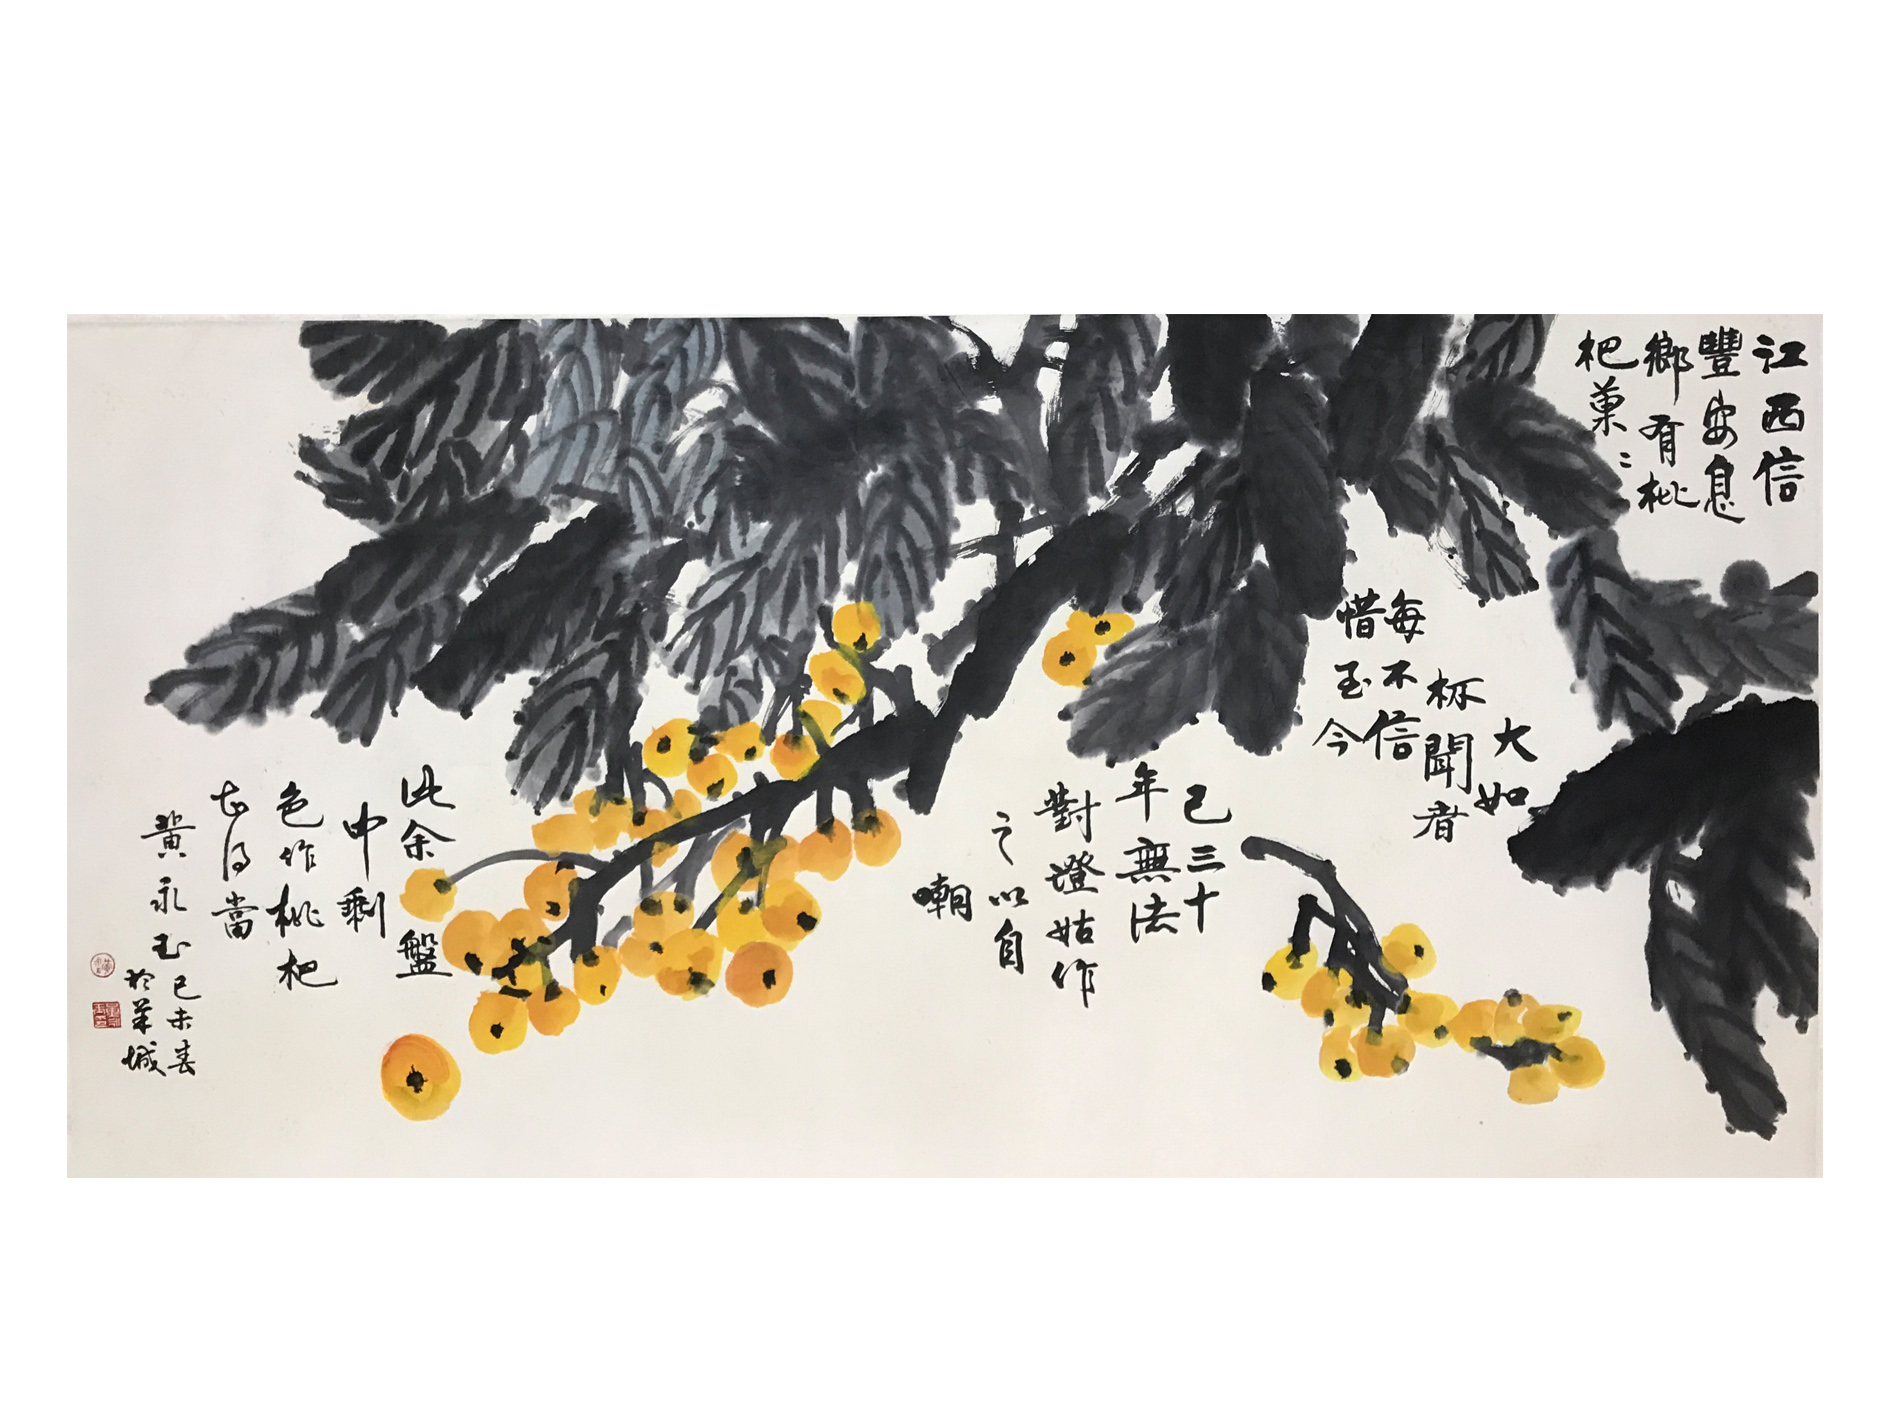 江西信
豐安息
鄉有枇
杷菓〻
大如
杯聞者
每不信
惜至今
已三十
年無法
對證姑作
之以自
嘲
此余盤
中剩
色作枇杷
得當
黃永玉
己未春
於羊城